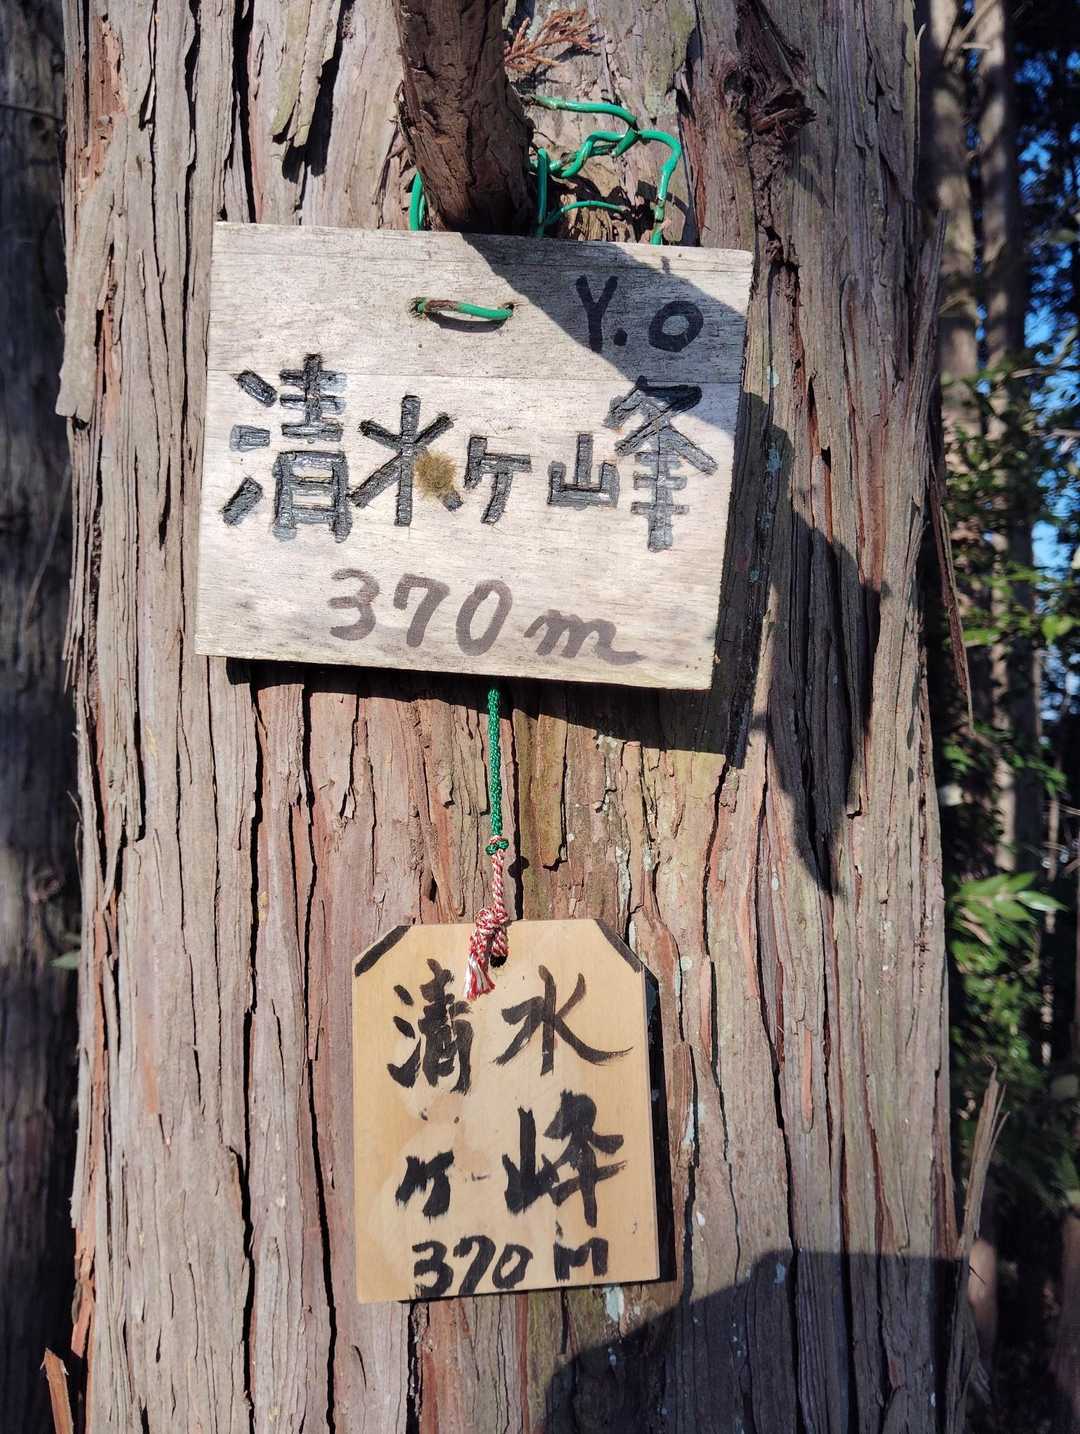 Y.O
清水ヶ峰
370m
清水
ヶ峰
370m